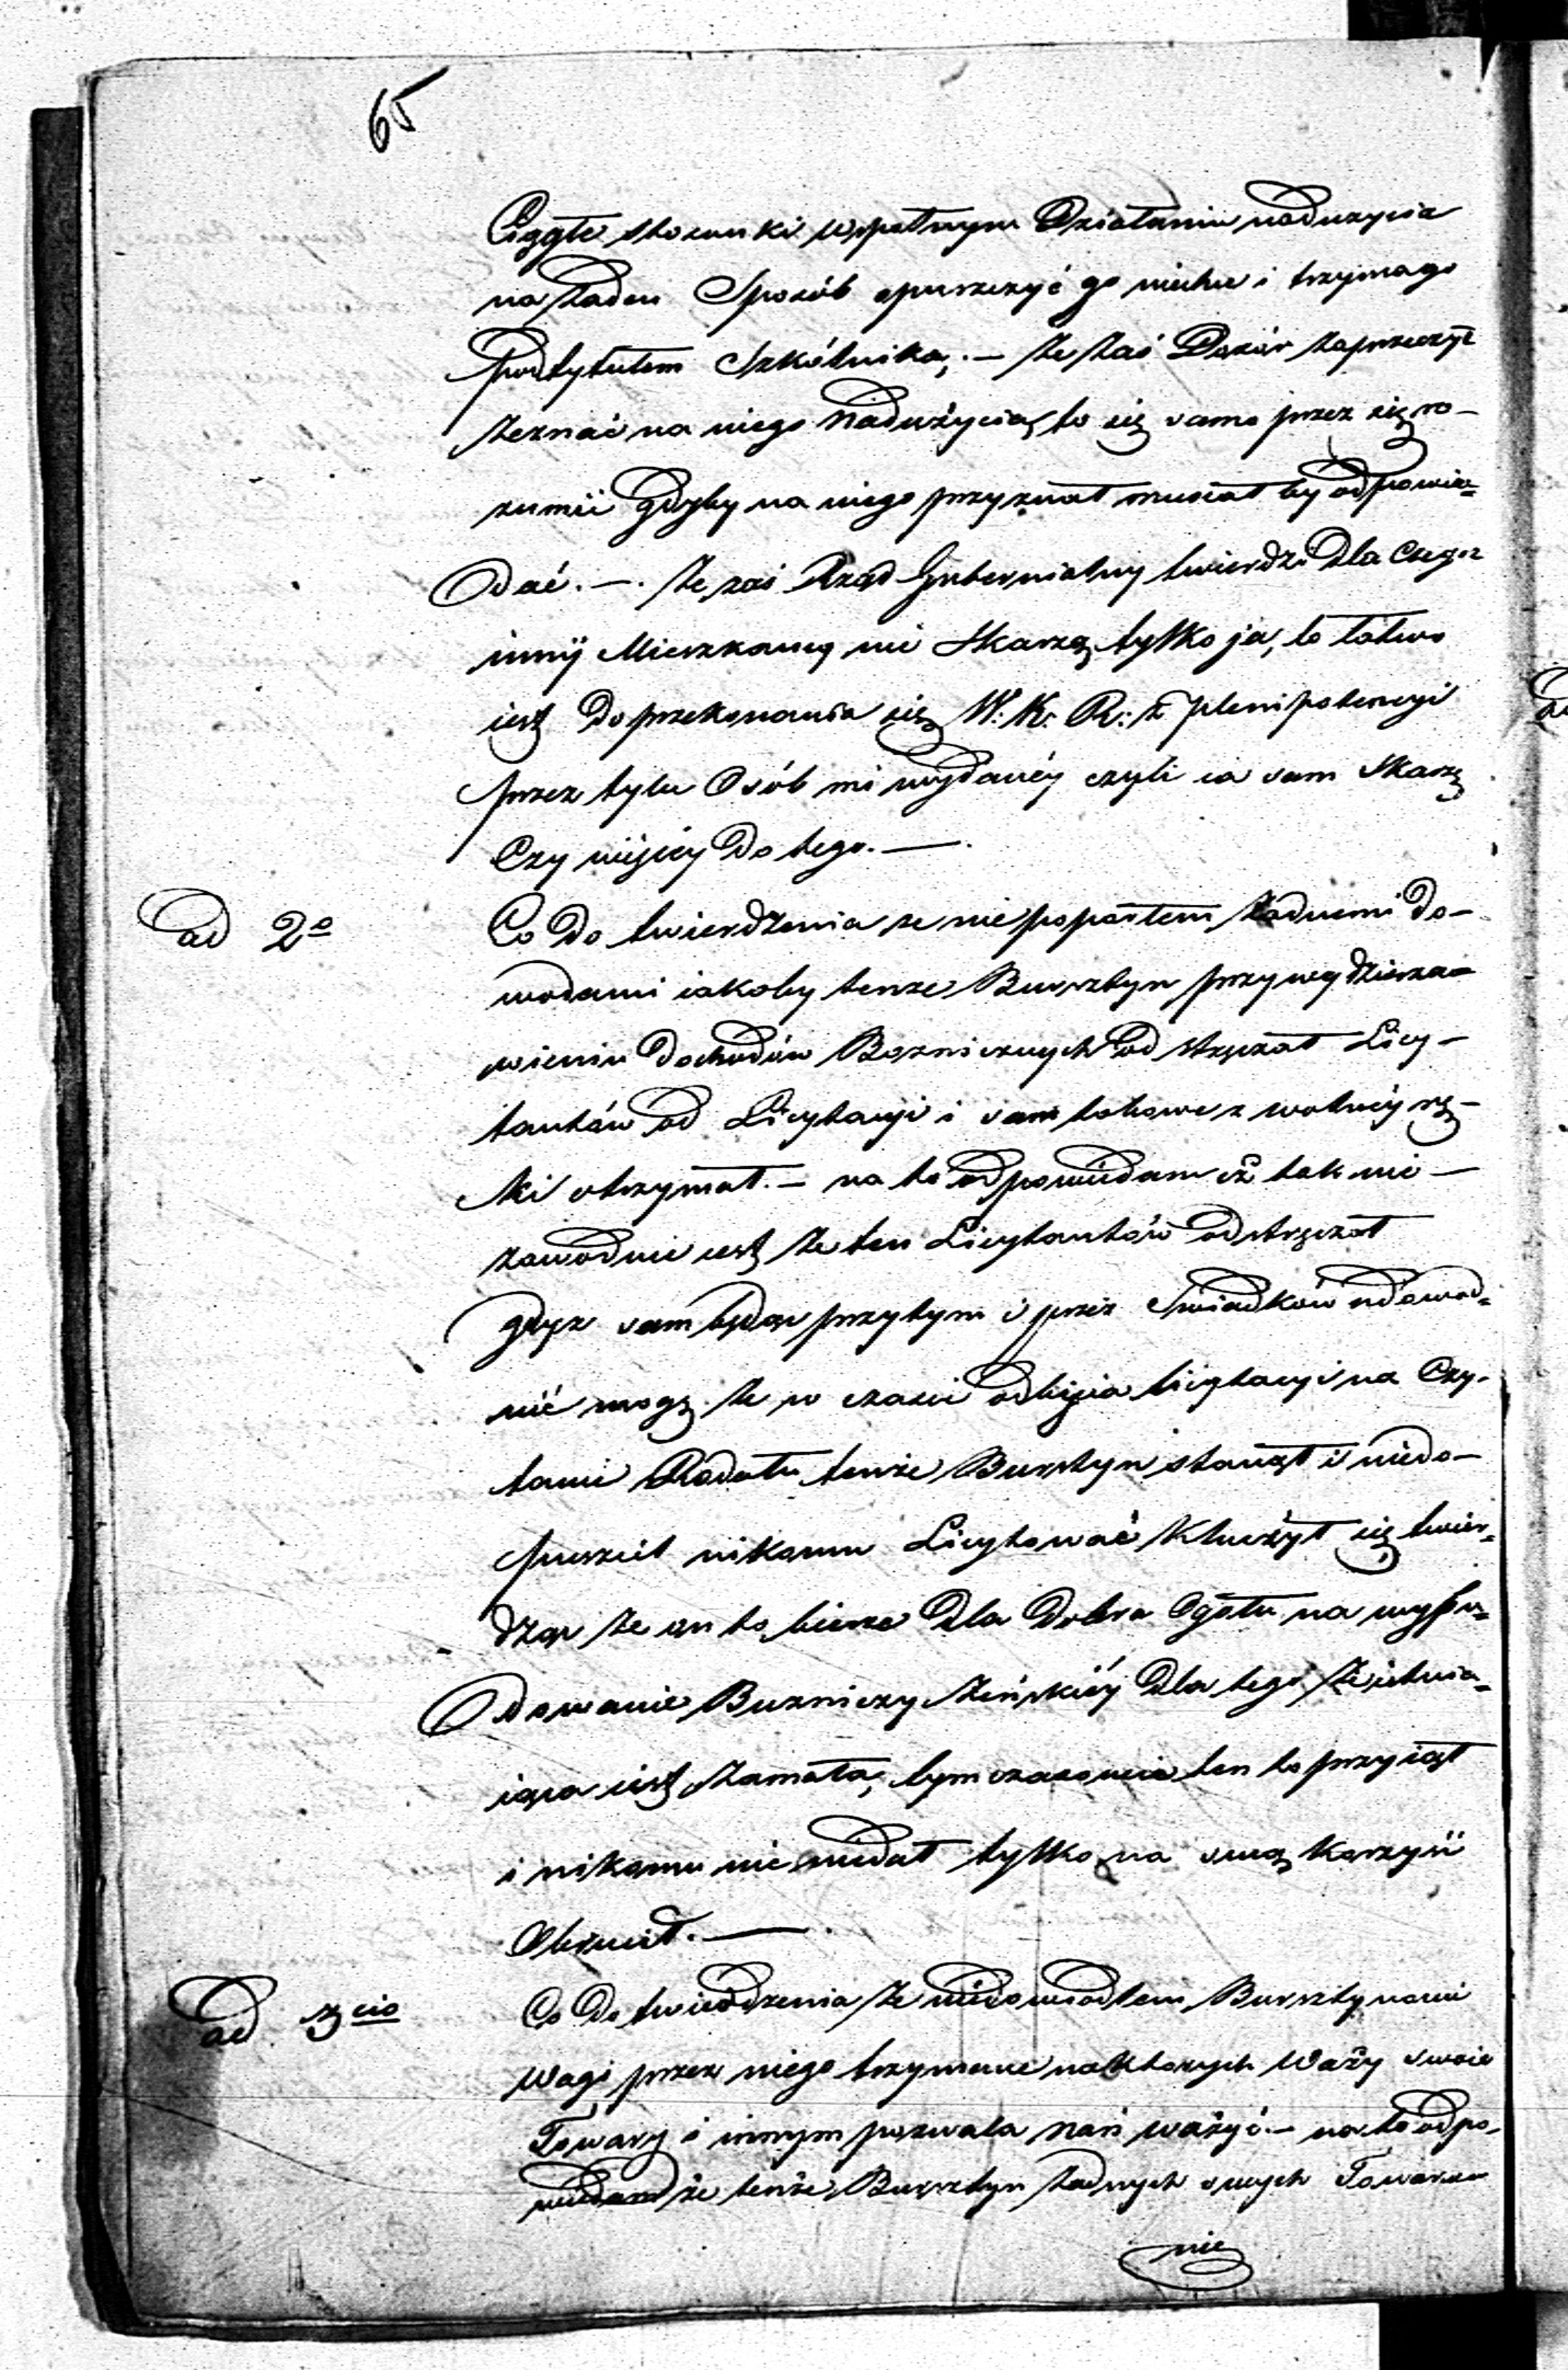 65
Ciągłe stosunki wspólnym Działaniu nadużycia
na żaden Sposób opuszczyć go niechce i trzymago
pod tytułem Szkólnika, — że zaś Dozór zaprzeczył
zeznać na niego nadużycia, to się samo przez się ro-
zumii gdyby na niego przyznał musiał by odpowia-
dać. — . że zaś Rząd Gubernialny twierdzi dla czego
innÿ Mieszkańcy nie Skarzą tylko ja, to łatwo
jest do przekonania się W: K: R: z plenipotencyi
przez tylu Osób mi wydanéy czyli ia sam skarzę
Czy więcey do tego. — .
ad 2o
Co do twierdzenia ze nie popartem żadnemi do-
wodami iakoby tenze Bursztyn przy wydzierza-
wieniu dochodów Boznicznych od stręczał Licy-
tantów od Licytacyi i sam takowe z wolnéy rę-
ki otrzymał. — na to odpowiedam iż tak nie-
zawodnie iest że ten Licytantów odstręczał
gdyz sam będąc przytym i przez Swiadków udowod-
nić mogę że w czasie odbycia licytacyi na Czy-
tanie Rodału tenże Bursztyn stanął i niedo-
puszcił nikomu Licytować Kłucżył się twier-
dząc że on to bierze dla dobra Ogółu na wyfu-
dowanie Buzniczy żeńskiéy dla tego że istnie-
iąca iest zamała, tymczasowie ten to przyiął
i nikomu nie niedał tylko na swą korzyść
Obrucił. — .
ad 3cio
Co do twierdzenia że niedowiodłem Bursztynowi
Wagi przez niego trzymane naktorych Waży swoie
Towary i innym pozwala nań ważyć. — na to odpo-
wiedam że tenże Bursztyn żadnych swych Towarow
nie